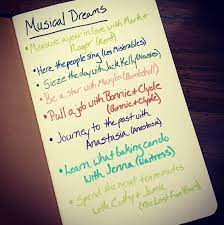 Musical Dreams
• Measure a year in love with Mark +
Roger (Rent)
• Hear the people sing (Les Misérables)
• Sieze the day with Jack Kelly (Newsies)
• Be a star with Marilyn (Bombshell)
• Pull a job with Bonnie + Clyde
(Bonnie + Clyde)
• Journey to the past with
Anastasia (Anastasia)
• Learn what baking can do
with Jenna (Waitress)
• Spend the next ten minutes
with Cathy + Jamie
(The Last Five Years)